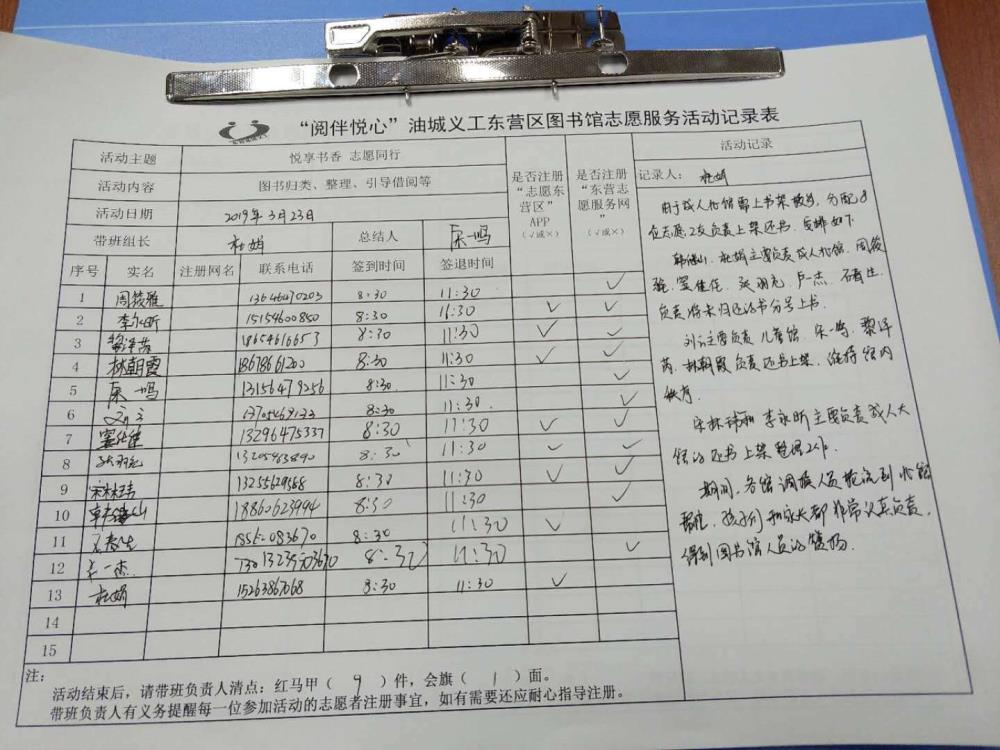 “阅伴悦心”油城义工东营区图书馆志愿服务活动记录表
活动主题 悦享书香 志愿同行
活动内容 图书归类、整理、引导借阅等
活动日期 2019年3月23日
带班组长 杜娟 总结人 宋一鸣
是否注册“志愿东营区”APP（√或×）
是否注册“东营志愿服务网”（√或×）
序号 实名 注册网名 联系电话 签到时间 签退时间
1 周筱雅 13646470203 8:30 11:30 √
2 李永昕 15154600850 8:30 11:30 √ √
3 黎泽芮 18654616653 8:30 11:30 √ √
4 林朝霞 18678661200 8:30 11:30 √ √
5 宋一鸣 13156479256 8:30 11:30 √
6 8:30 11:30 √
7 窦佳佳 13296475337 8:30 11:30 √ √
8 8:30 11:30 √ √
9 宋林玮 13255629568 8:30 11:30 √ √
10 18860623994 8:30 11:30 √
11 8:30 11:30 √
12 8:30 11:30 √
13 杜娟 15263867068 8:30 11:30 √
14
15
活动记录
记录人：杜娟
由于成人 馆需上书架较多，分配8
位志愿 负责上架还书，安排如下
杜娟主要负责成人 馆，周筱
雅，窦佳佳，
负责将未归还的书分号上书
主要负责儿童馆，宋一鸣，黎泽
芮，林朝霞负责还书上架，维持馆内
秩序。
宋林玮和李永昕主要负责成人大
馆的还书上架整理工作。
期间，各馆调换人员轮流到
孩子们和家长都非常认真负责，
得到图书馆人员的赞扬。
注：
活动结束后，请带班负责人清点：红马甲（ 9 ）件，会旗（ 1 ）面。
带班负责人有义务提醒每一位参加活动的志愿者注册事宜，如有需要还应耐心指导注册。